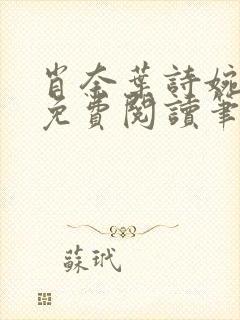 肖奈葉詩婉
免費閱讀筆
蘇玳